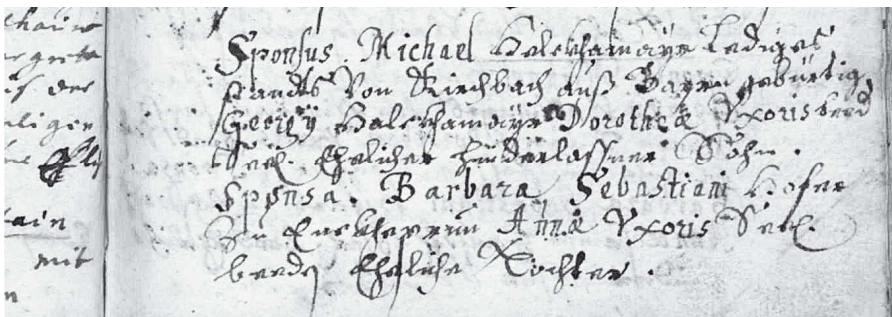 Sponsus. Michael Halekhamayr Lediges
Standts Von Kirchbach auß Bayrn gebürtig,
Georgÿ Halekhamayr Dorotheæ Vxoris beed
Seel. Ehelicher hinderlassner Sohn.
Sponsa. Barbara Sebastiani Hofer
Zu Annæ Vxoris Seel.
beeder Ehliche Tochter.
mit